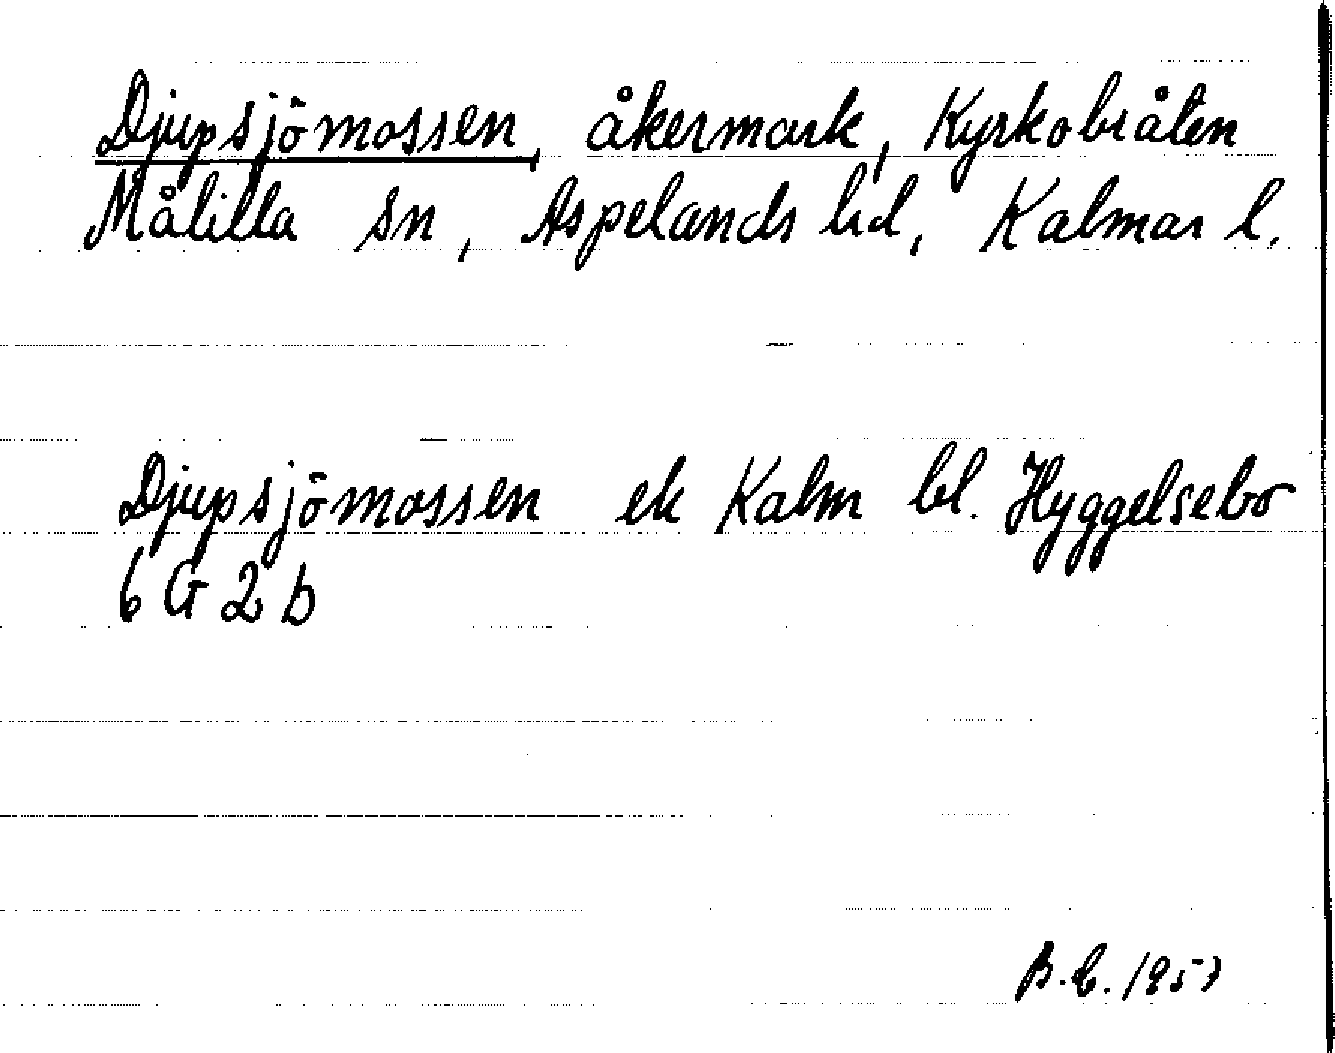 Djupsjömossen, åkermark, Kyrkobråten
Målilla sn, Aspelands hd, Kalmar l.
Djupsjömossen ek Kalm bl. Hyggelsebo
6 G 2 b
B.E. 1957